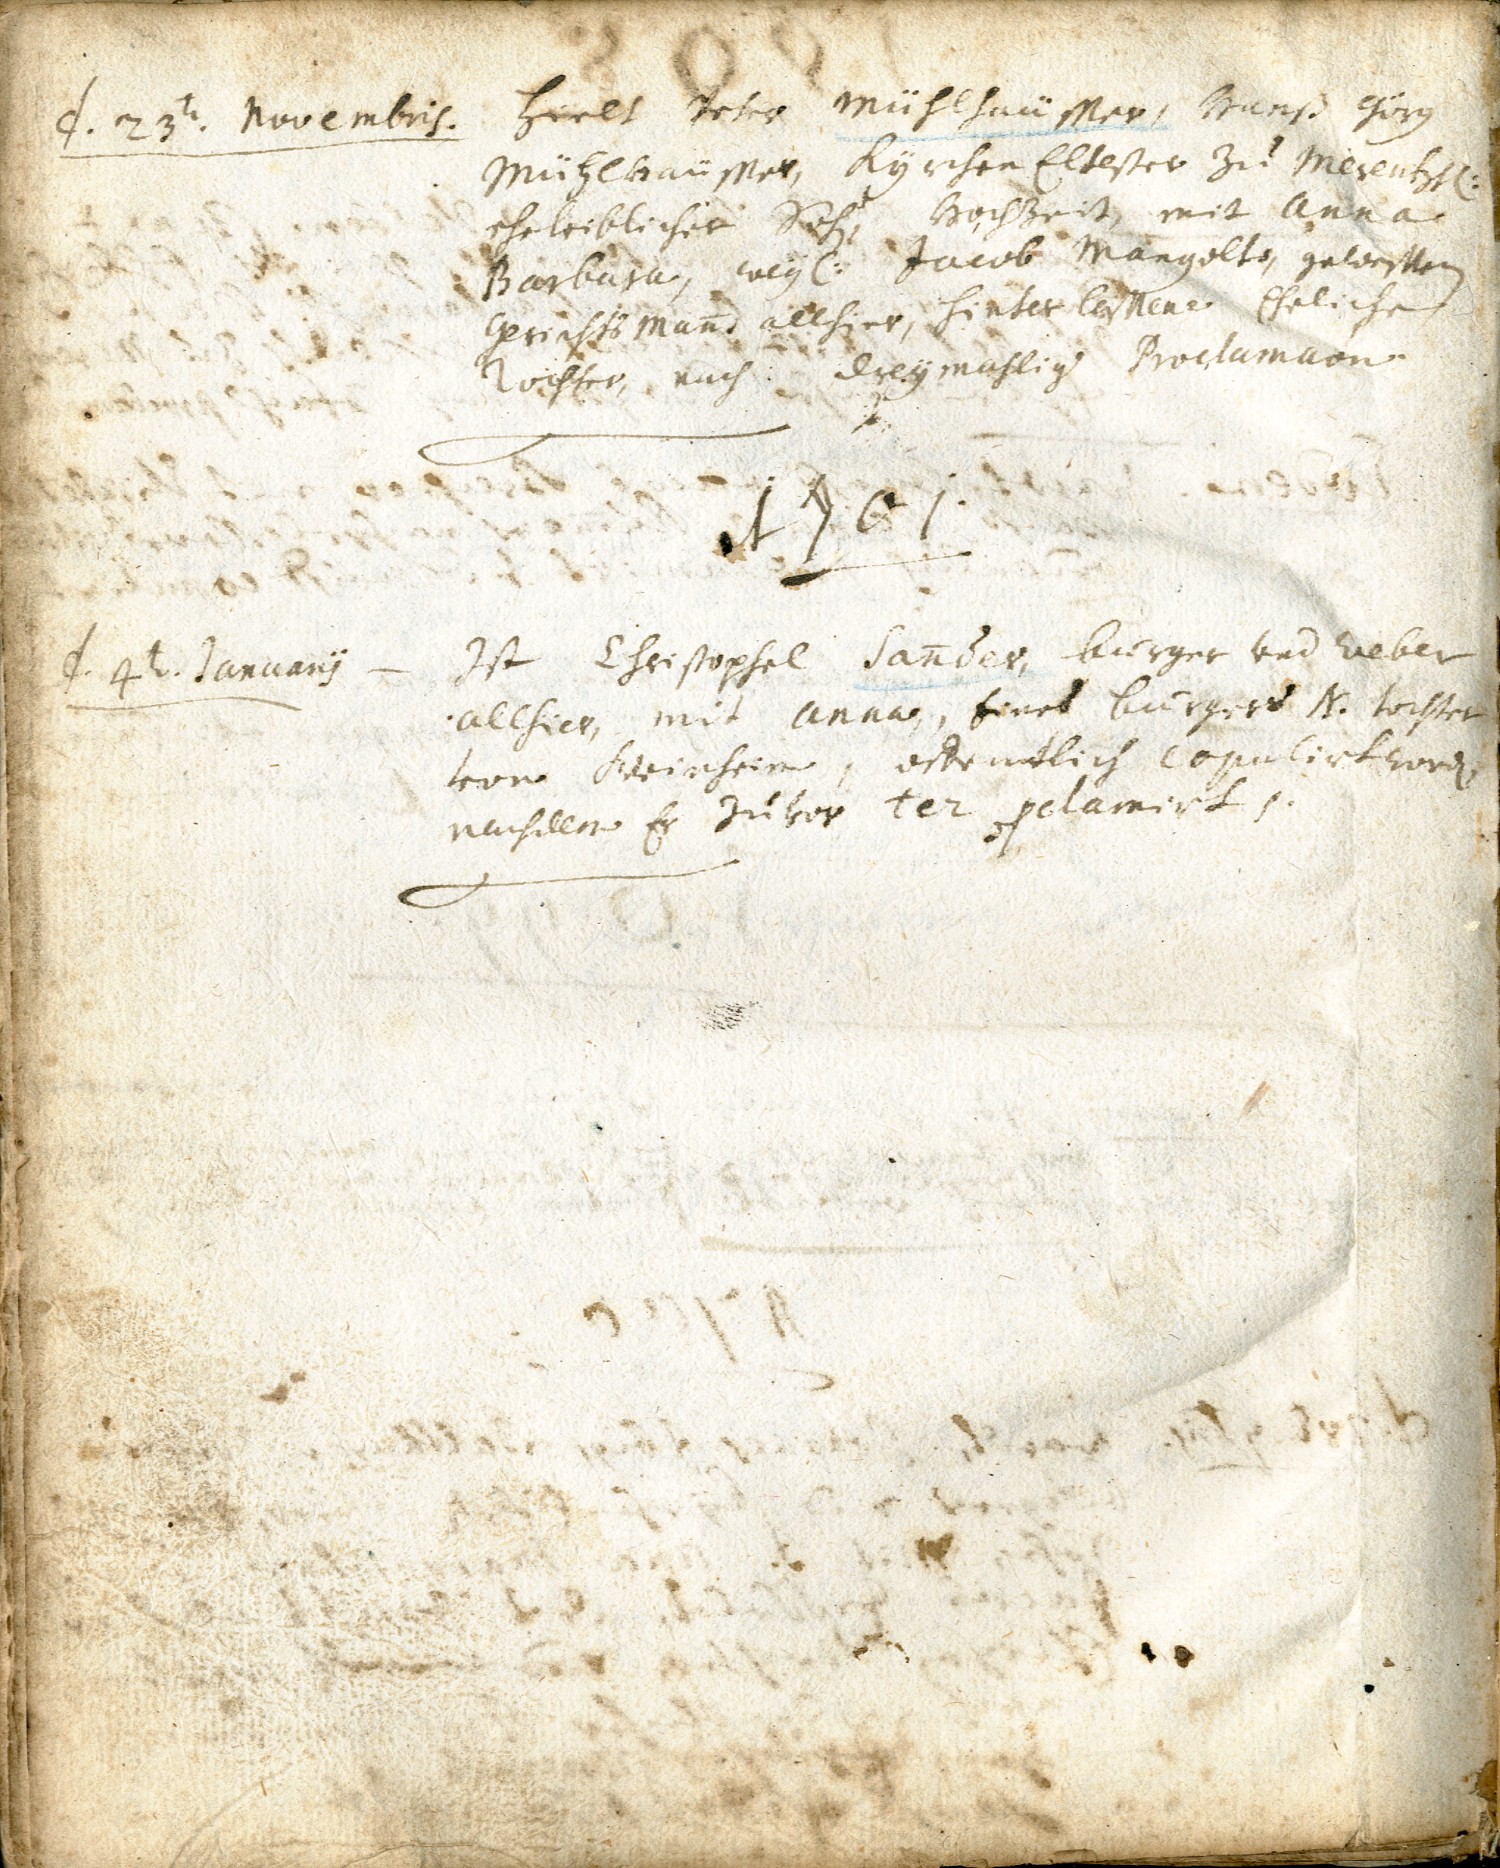 d. 23t. Novembris. Hielt Peter Mühlhäusser, Hanß Görg
Mühlhäusser, Kyrchen Eltester zu
eheleiblicher Sohn, Hochzeit, mit Anna
Barbara, weyl: Jacob Mangolts, gewessenen
Gerichts Manns allhier, hinterlassene Eheliche
Tochter, nach dreymahliger Proclamaon
1701.
d. 4t. Januarij – Ist Christophel Sander, burger und weber
allhier, mit Anna, eines burgers N. tochter
von Weinheim, offentlich copulirt word.
nachdem Er zuvor ter pclamirt